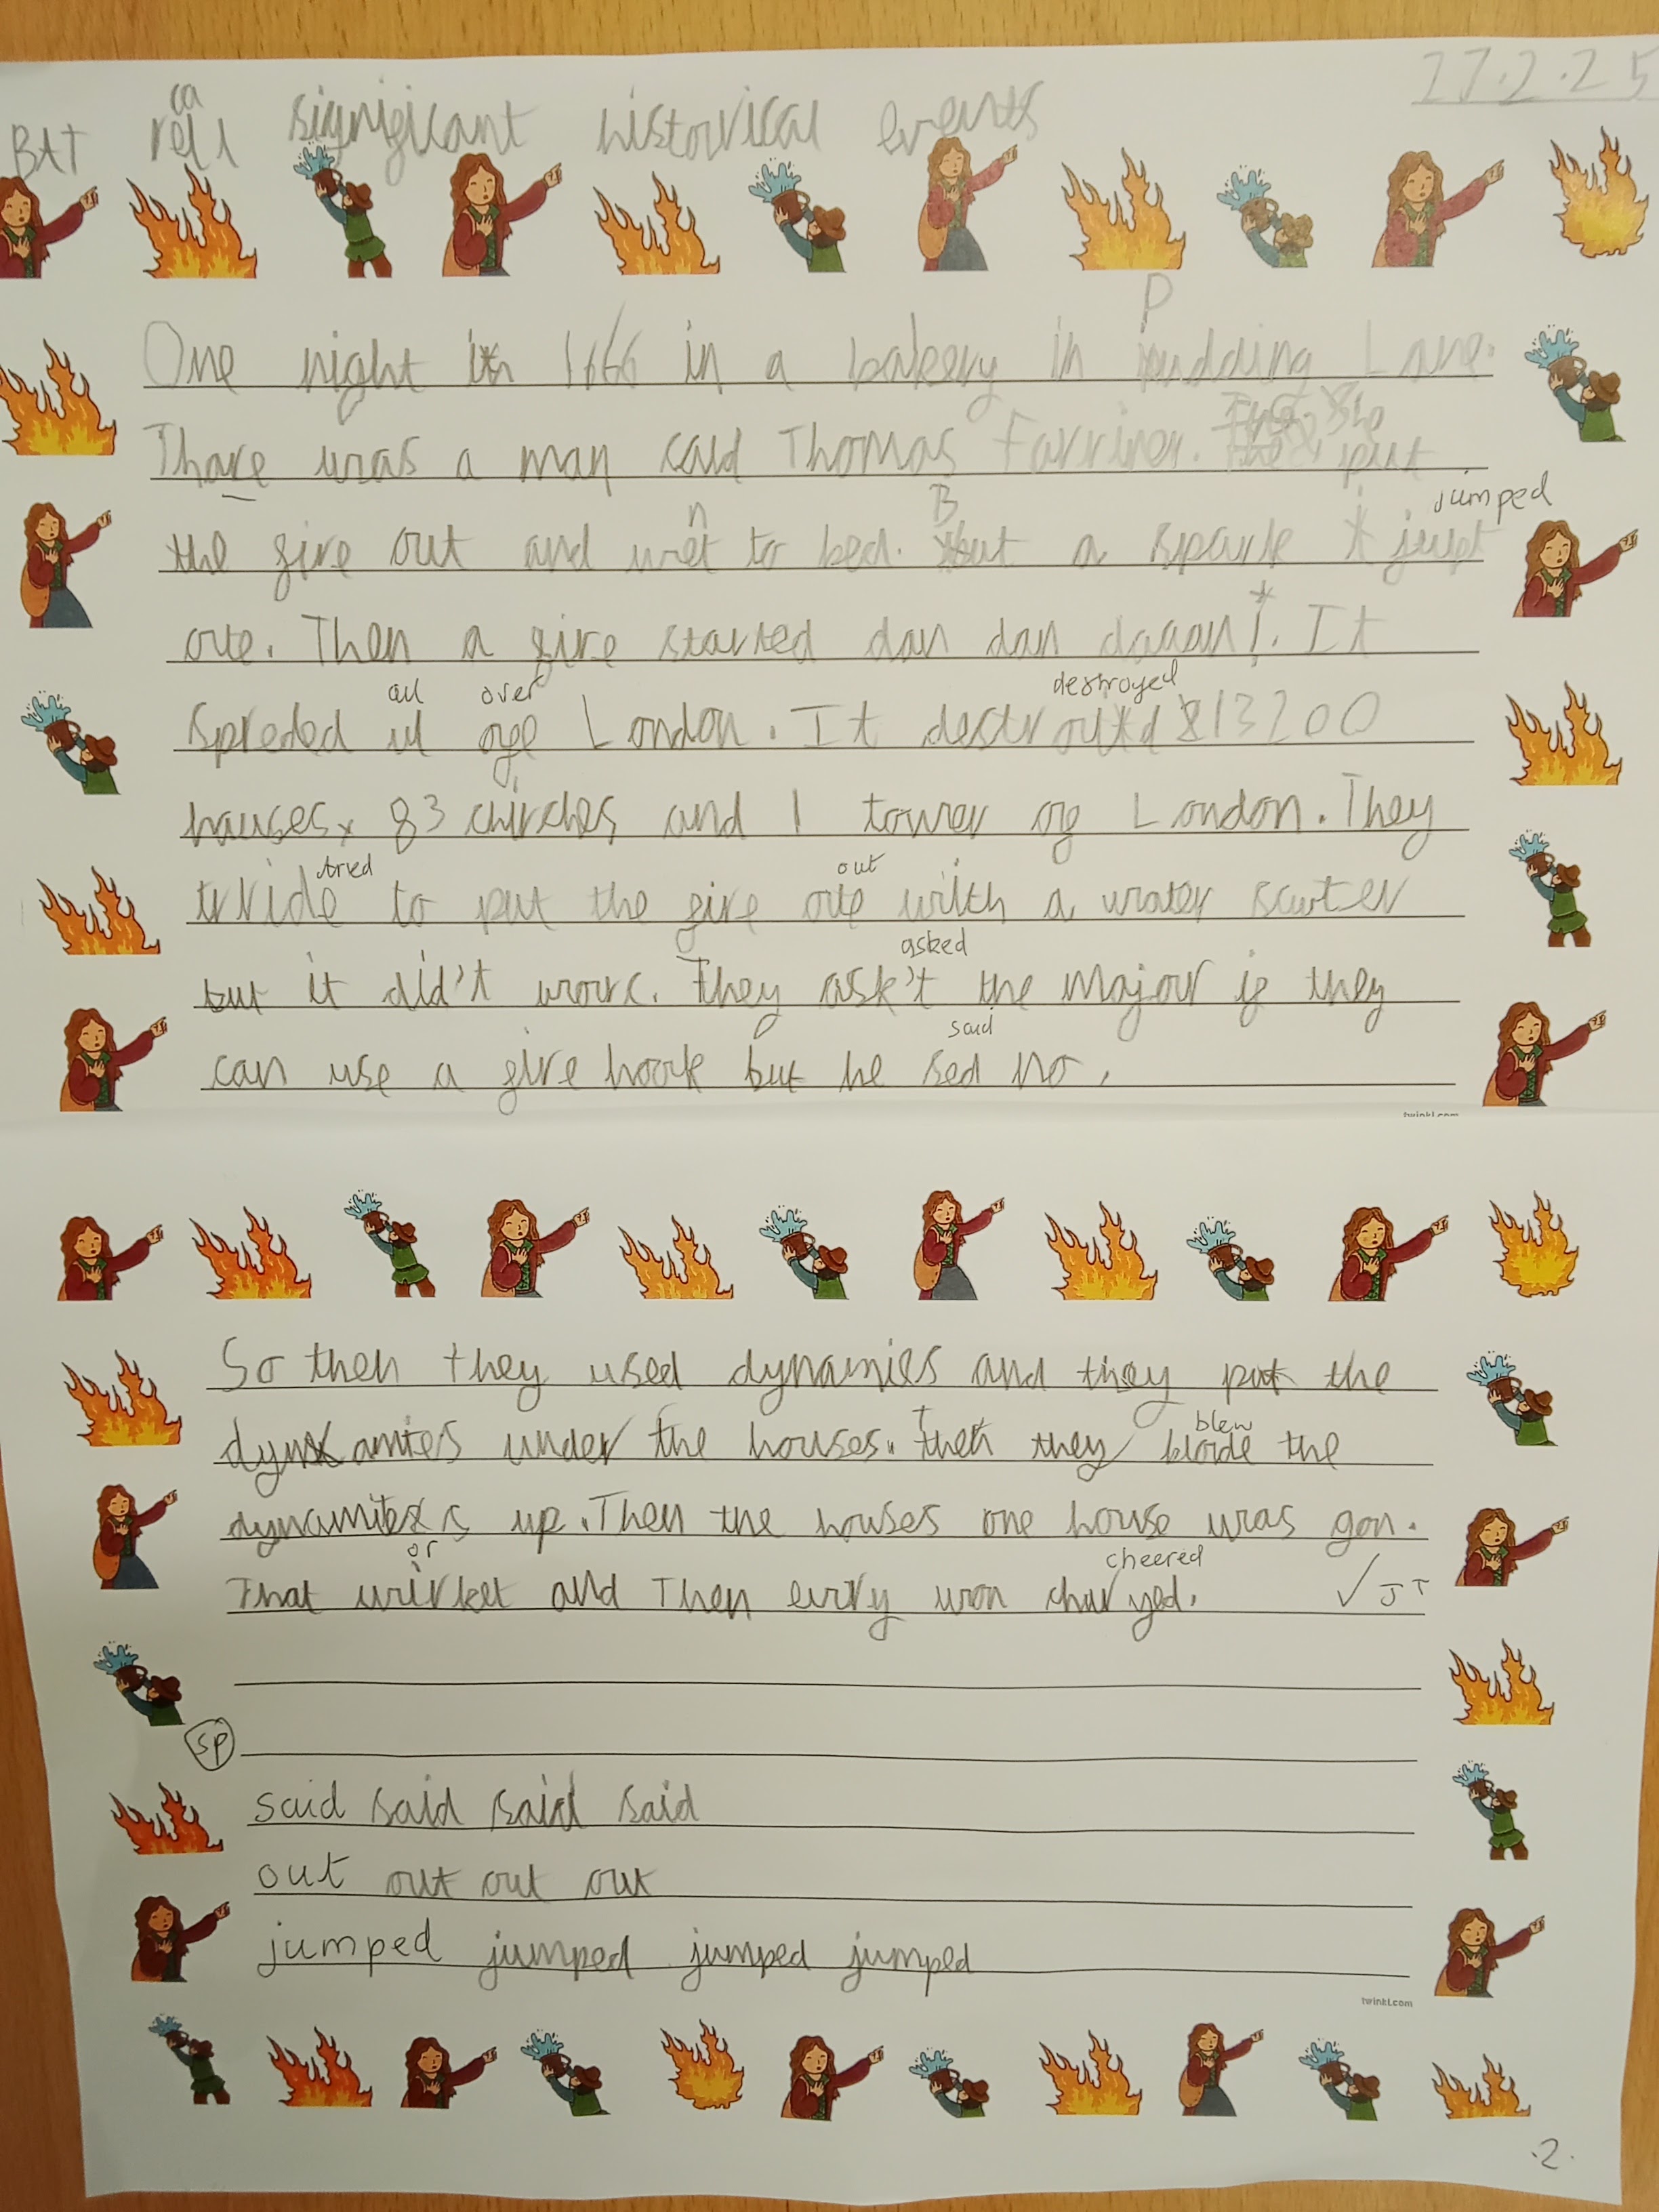 27.2.25
ca
BAT rell significant historical events
P
One night in 1666 in a bakery in pudding Lane.
Thare was a man cald Thomas Farriner. put
n B jumped
the fire out and wet to bed. but a spark jupt
oute. Then a fire started dan dan daaan!. It
all over destroyed
Spreded ul ove London. It destrouted 13200
hauses, 83 chirches and 1 tower of London. They
tried out
tride to put the fire oute with a water scwter
asked
but it did't worrc. They ask't the Major if they
said
can use a fire hook but he sed no.
twinkl.com
So then they used dynamies and they put the
T blew
dynamites under the houses. then they blorde the
dynamites up. Then the houses one house was gon.
or cheered
That wirket and Then evrry won charyed. ✓ JT
sp
said said said said
out out out out
jumped jumped jumped jumped
twinkl.com
.2.